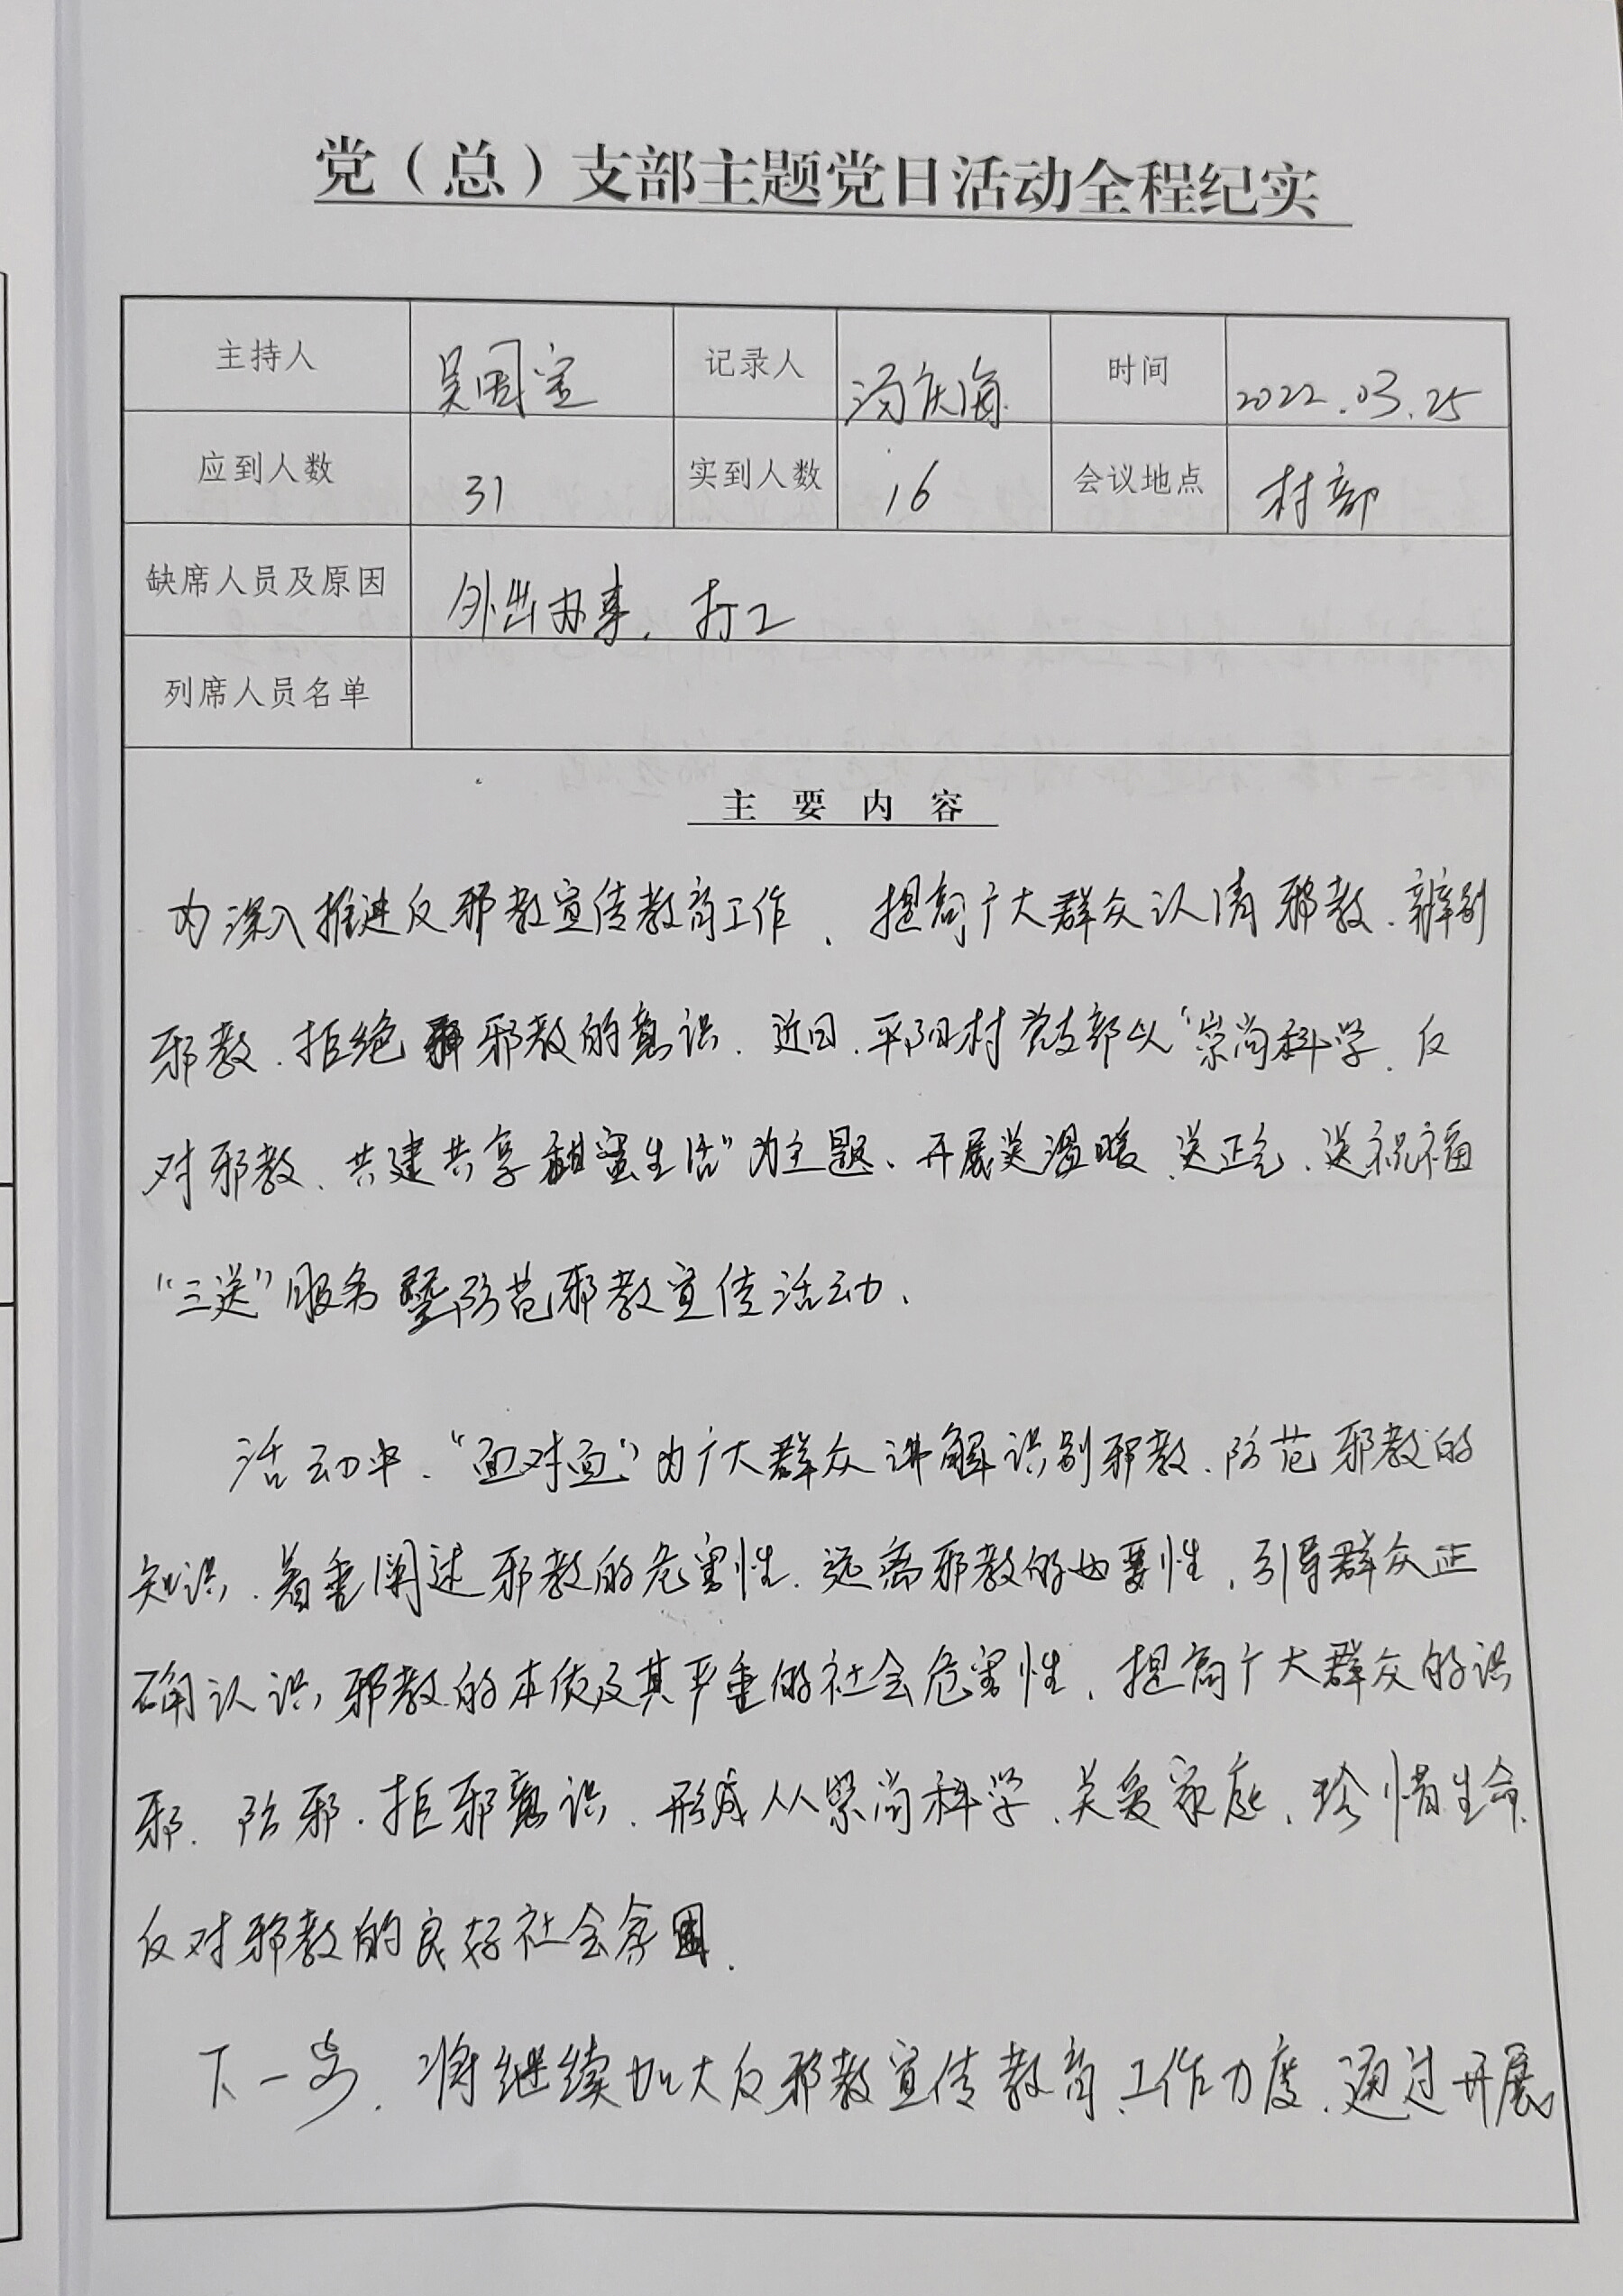 党（总）支部主题党日活动全程纪实
主持人 吴国宝 记录人 汤庆海 时间 2022.03.25
应到人数 31 实到人数 16 会议地点 村部
缺席人员及原因 外出办事、打工
列席人员名单
主要内容
为深入推进反邪教宣传教育工作，提高广大群众认清邪教、辨别
邪教、拒绝邪教的意识．近日，平阳村党支部以“崇尚科学、反
对邪教、共建共享甜蜜生活”为主题、开展送温暖、送正气、送祝福
“三送”服务暨防范邪教宣传活动．
活动中，“面对面”为广大群众讲解识别邪教、防范邪教的
知识，着重阐述邪教的危害性、远离邪教的必要性，引导群众正
确认识邪教的本质及其严重的社会危害性，提高广大群众的识
邪、防邪、拒邪意识，形成人人崇尚科学、关爱家庭、珍惜生命、
反对邪教的良好社会氛围．
下一步，将继续加大反邪教宣传教育工作力度，通过开展